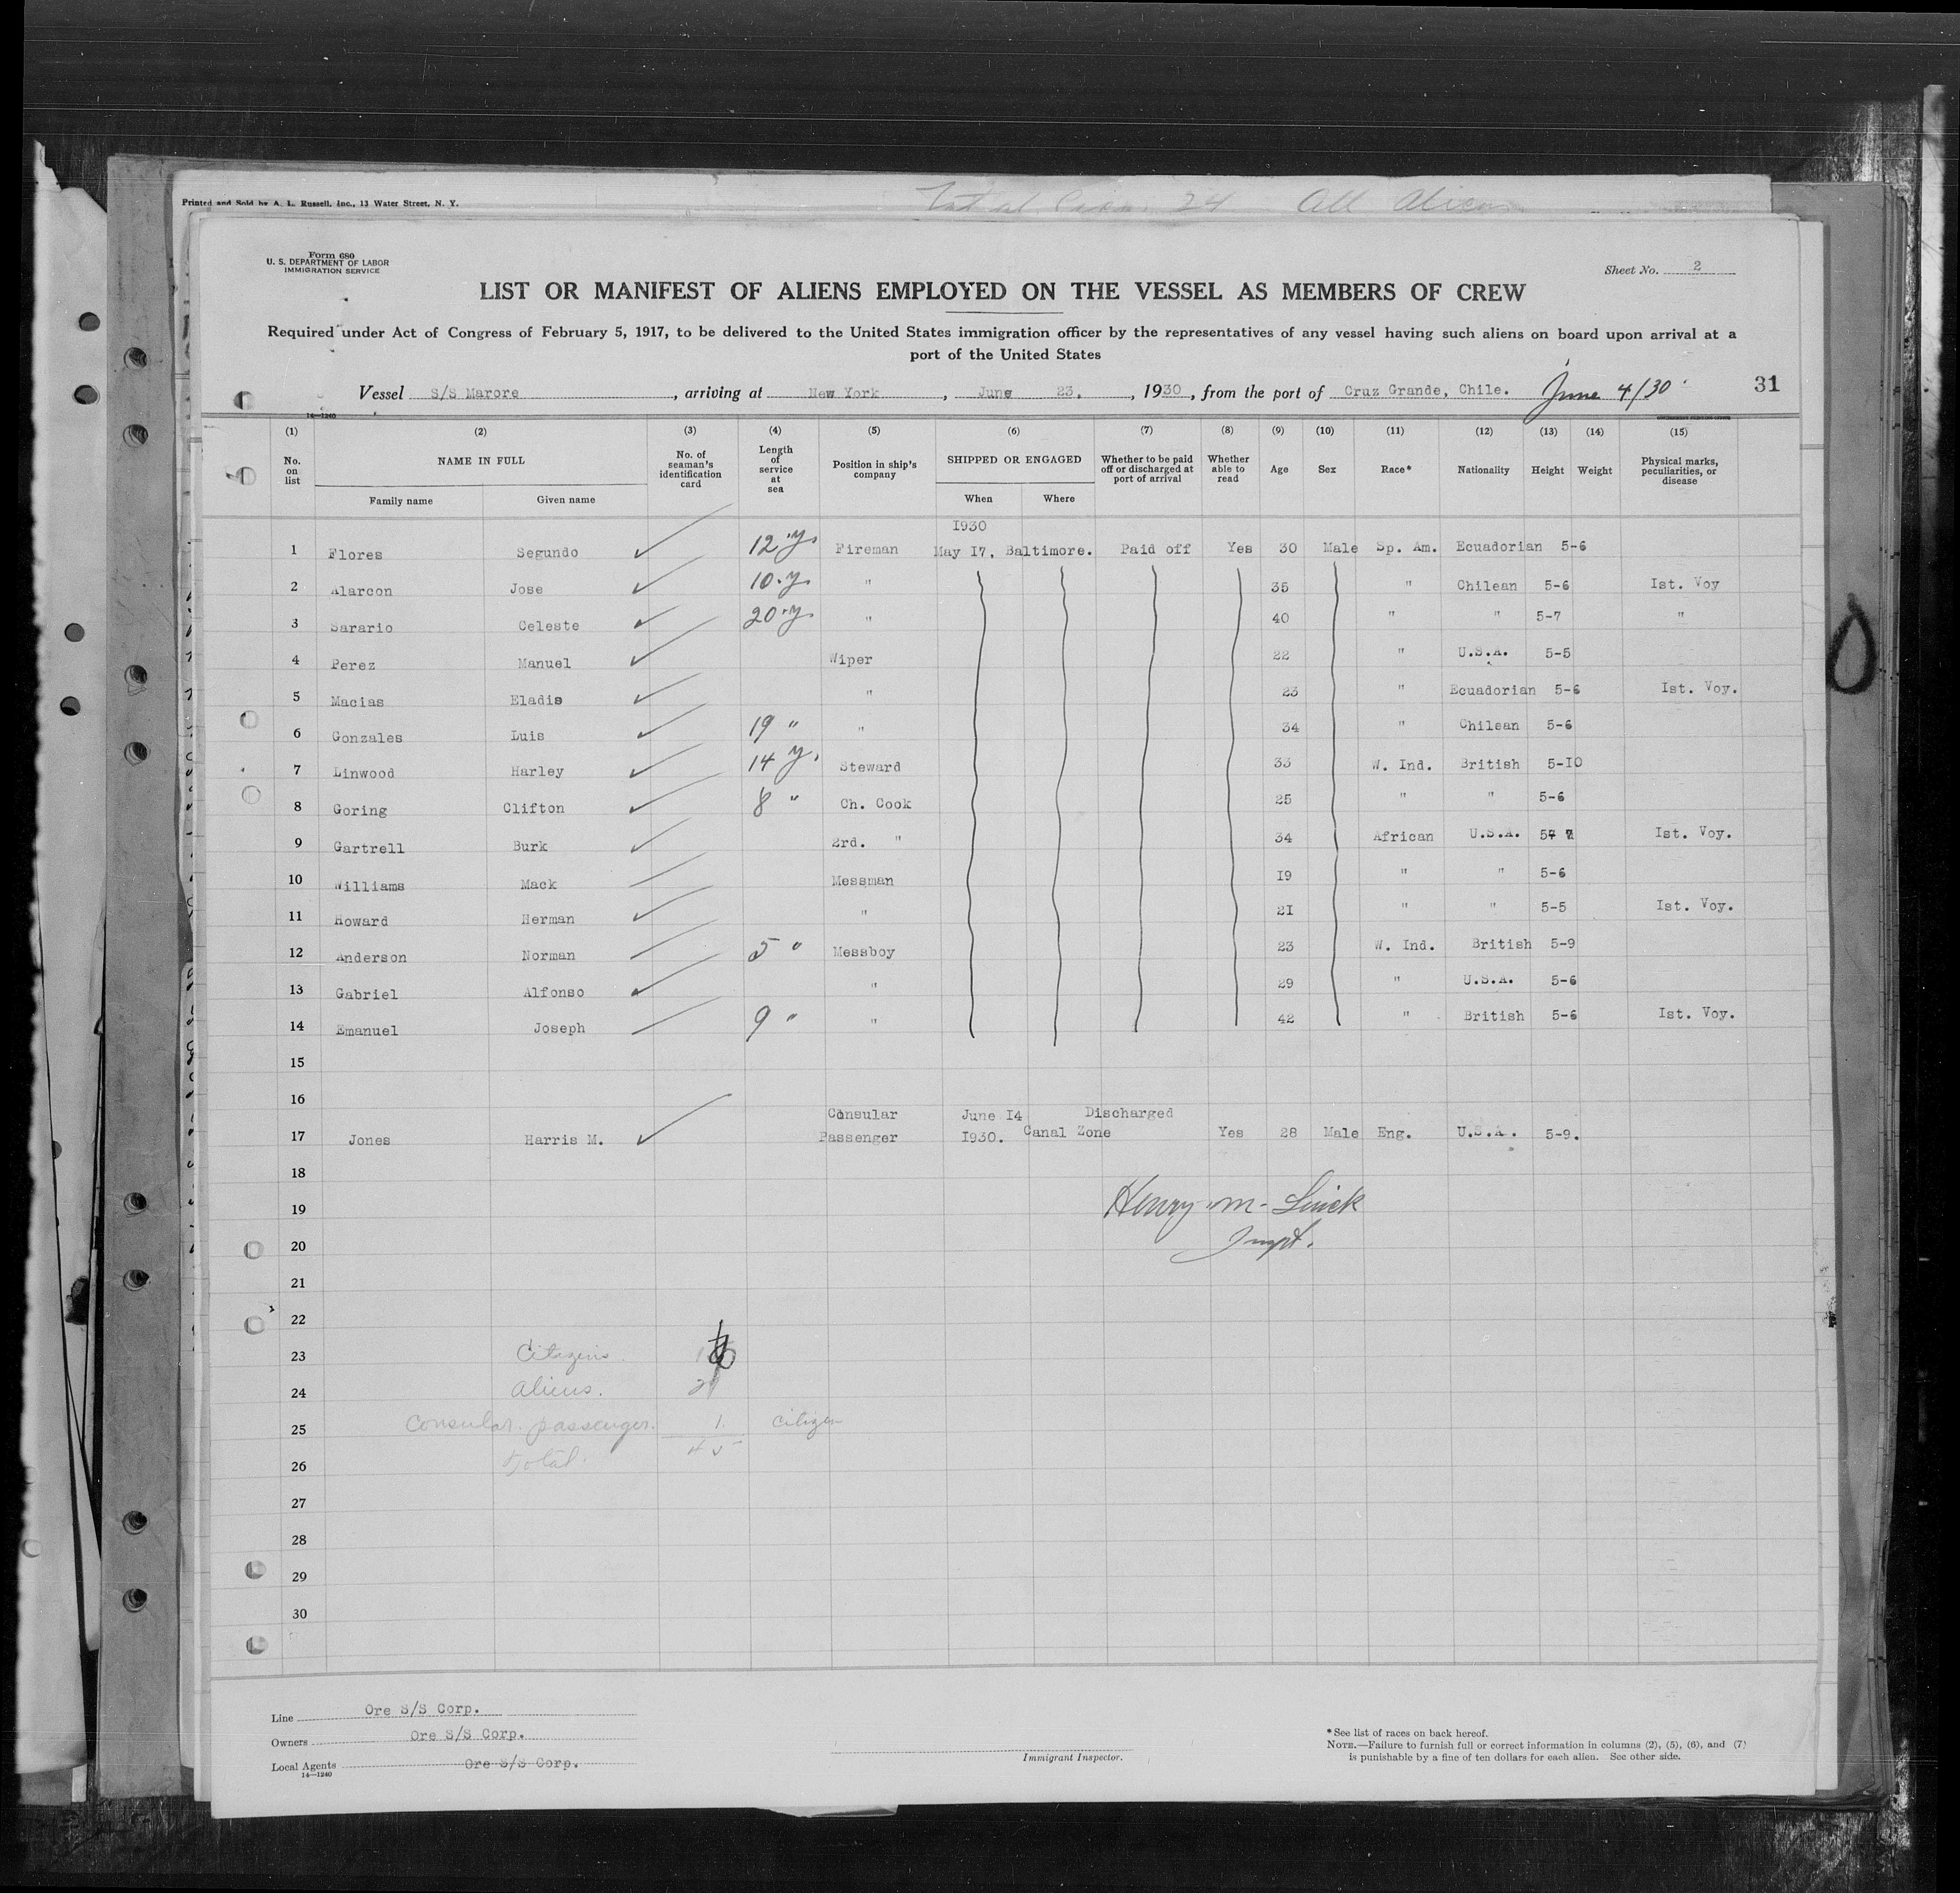 Printed and Sold by A. L. Russell, Inc., 13 Water Street, N. Y.
Total Crew 24 All Aliens
Form 680
U. S. DEPARTMENT OF LABOR
IMMIGRATION SERVICE
Sheet No. 2
LIST OR MANIFEST OF ALIENS EMPLOYED ON THE VESSEL AS MEMBERS OF CREW
Required under Act of Congress of February 5, 1917, to be delivered to the United States immigration officer by the representatives of any vessel having such aliens on board upon arrival at a
port of the United States
Vessel S/S Marore, arriving at New York, June 23., 1930, from the port of Cruz Grande, Chile. June 4/30 31
14—1240
(1) (2) (3) (4) (5) (6) (7) (8) (9) (10) (11) (12) (13) (14) (15)
No. on list NAME IN FULL Family name Given name No. of seaman's identification card Length of service at sea Position in ship's company SHIPPED OR ENGAGED When Where Whether to be paid off or discharged at port of arrival Whether able to read Age Sex Race* Nationality Height Weight Physical marks, peculiarities, or disease
1930
1 Flores Segundo 12 y. Fireman May 17, Baltimore. Paid off Yes 30 Male Sp. Am. Ecuadorian 5-6
2 Alarcon Jose 10 y. " 35 " Chilean 5-6 Ist. Voy
3 Sarario Celeste 20 y. " 40 " " 5-7 "
4 Perez Manuel Wiper 22 " U.S.A. 5-5
5 Macias Eladis " 23 " Ecuadorian 5-6 Ist. Voy.
6 Gonzales Luis 19 " " 34 " Chilean 5-6
7 Linwood Harley 14 y. Steward 33 W. Ind. British 5-10
8 Goring Clifton 8 " Ch. Cook 25 " " 5-6
9 Gartrell Burk 2rd. " 34 African U.S.A. 57 7 Ist. Voy.
10 Williams Mack Messman 19 " " 5-6
11 Howard Herman " 21 " " 5-5 Ist. Voy.
12 Anderson Norman 5 " Messboy 23 W. Ind. British 5-9
13 Gabriel Alfonso " 29 " U.S.A. 5-6
14 Emanuel Joseph 9 " " 42 " British 5-6 Ist. Voy.
15
16
Consular June 14 Discharged
17 Jones Harris M. Passenger 1930. Canal Zone Yes 28 Male Eng. U.S.A. 5-9.
18
19 Henry M. Linck
20 Inspt.
21
22
23 Citizens
24 Aliens.
25 Consular passenger. 1. citizen
26 Total. 45
27
28
29
30
Line Ore S/S Corp.
Owners Ore S/S Corp.
Local Agents Ore S/S Corp.
14—1240
Immigrant Inspector.
*See list of races on back hereof.
NOTE.—Failure to furnish full or correct information in columns (2), (5), (6), and (7)
is punishable by a fine of ten dollars for each alien. See other side.